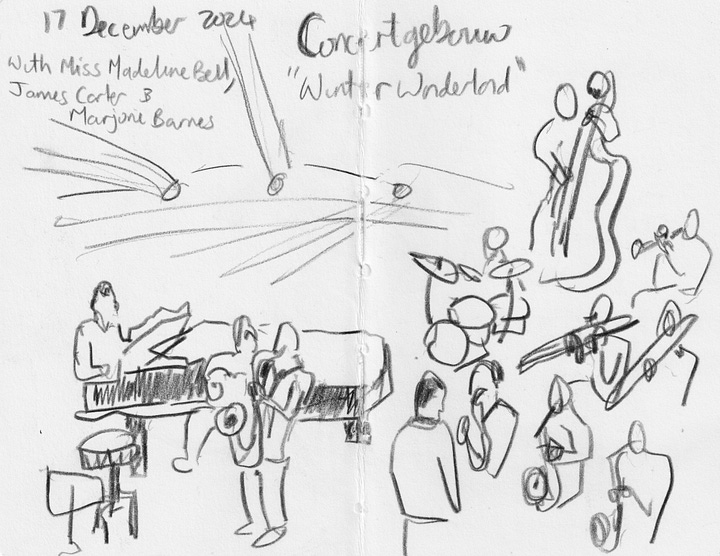 17 December 2024
Concertgebouw
"Winter Wonderland"
With Miss Madeline Bell,
James Carter &
Marjorie Barnes